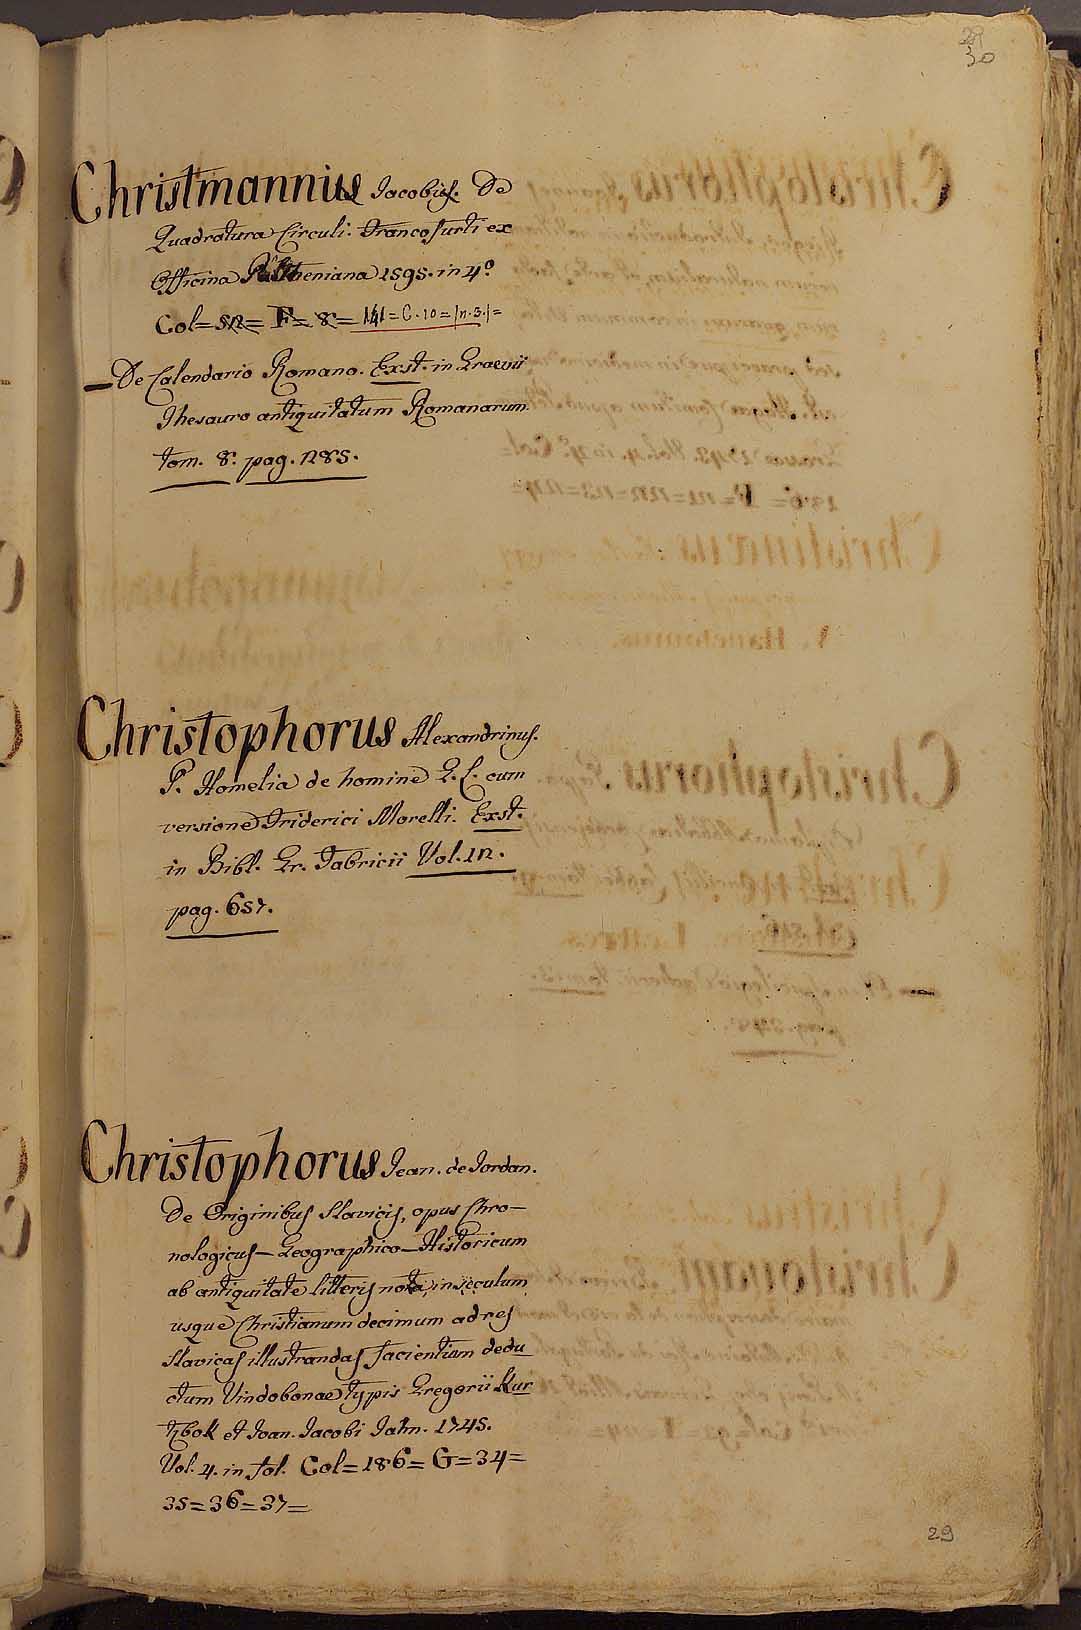 29
30
Christmannius Jacobus. De
Quadratura Circuli. Francofurti ex
Officina Paltheniana 1595. in 4º
Col= F= 8= 141=C.10=|n.3.|=
— De Calendario Romano. Exst. in Graevii
Thesauro antiquitatum Romanarum
tom. 8. pag. 285.
Christophorus Alexandrinus.
P. Homelia de homine G. L. cum
versione Friderici Morelli. Exst.
in Bibl. Gr. Fabricii Vol. 12.
pag. 657.
Christophorus Jean. de Jordan.
De Originibus Slavicis, opus Chro-
nologicus-Geographico-Historicum
ab antiquitate litteris nota, in seculum
usque Christianum decimum ad res
Slavicas illustrandas facientium dedu
ctum Vindobonae typis Gregorii Kur
tzbok et Joan. Jacobi Jahn. 1745.
Vol. 4. in fol. Col=186=G=34=
35=36=37=
29